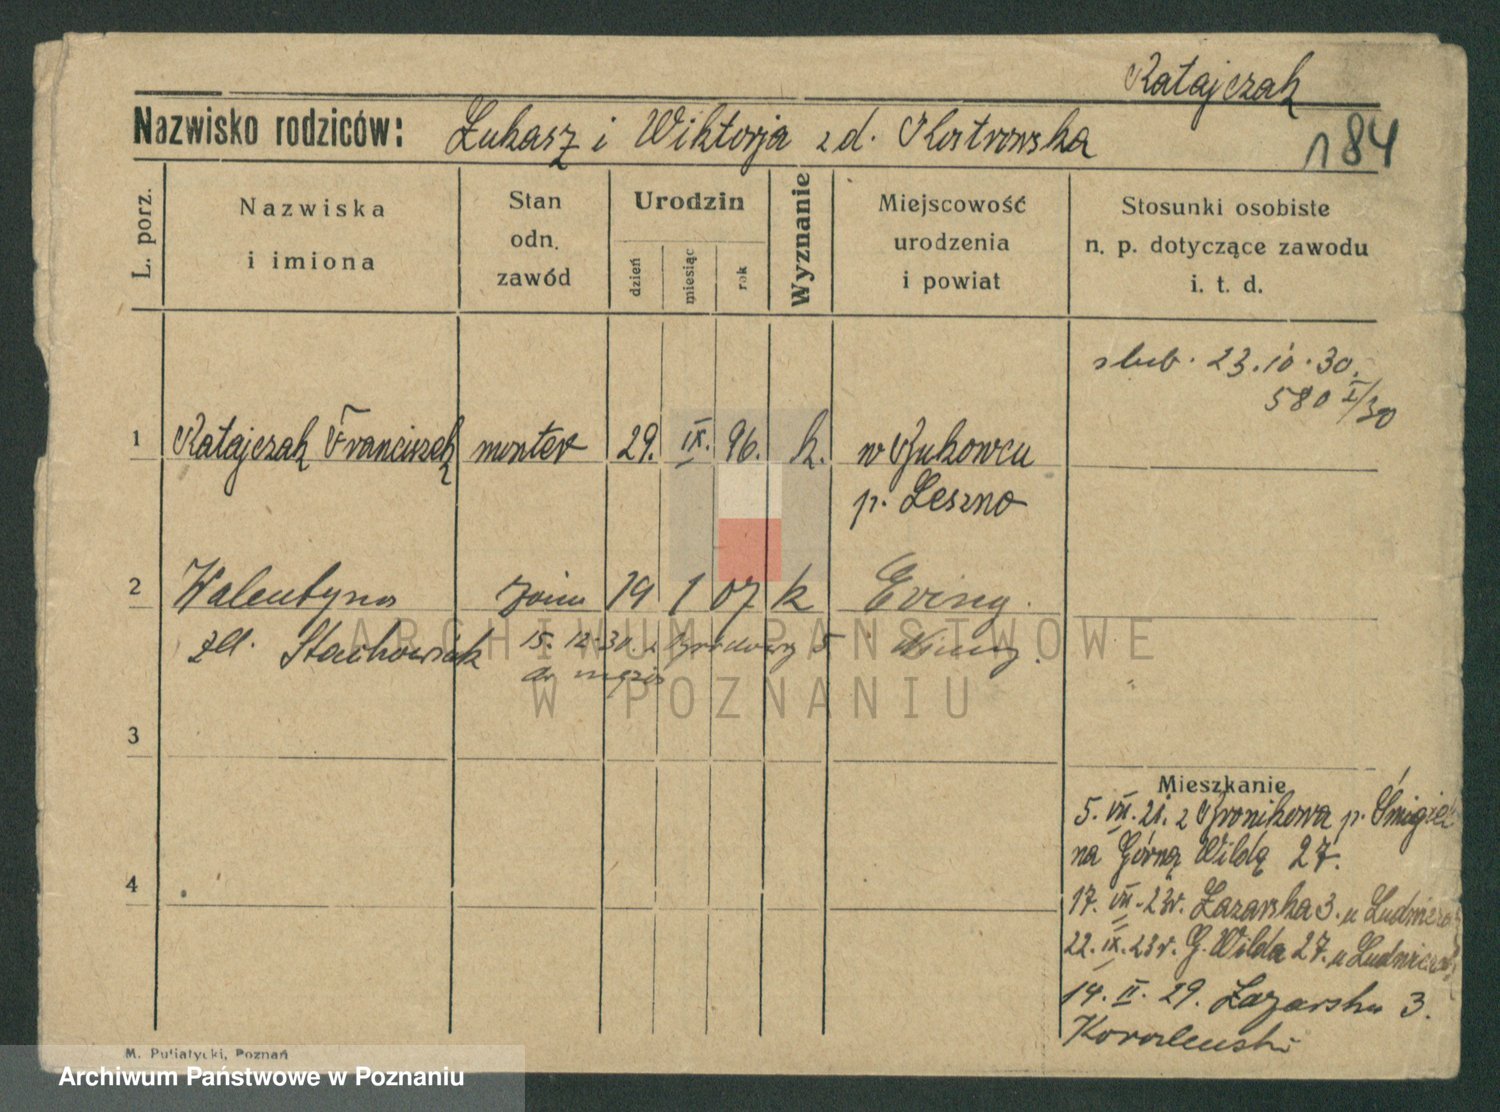 Ratajczak
Nazwisko rodziców: Łukasz i Wiktorja z d. Kostrowska
184
L. porz.
Nazwiska
i imiona
Stan
odn.
zawód
Urodzin
dzień
miesiąc
rok
Wyznanie
Miejscowość
urodzenia
i powiat
Stosunki osobiste
n. p. dotyczące zawodu
i. t. d.
ślub. 23.10.30.
580 I/30
1 Ratajczak Franciszek monter 29. IX. 96. k. w Bukowcu
p. Leszno
2 Walentyna żona 19 1 07 k Eving.
zd. Stachowiak 15.12.30. z 5 Niemcy.
do męża
3
Mieszkanie
5. VII. 21. z Bronikowa p. Śmigiel
na Górną Wildę 27.
4
17. VII. 23r. Łazarska 3. u
22. IX. 23r. G. Wilda 27. u
14. II. 29. Łazarska 3.
M. Putiatycki, Poznań
ARCHIWUM PAŃSTWOWE
W POZNANIU
Archiwum Państwowe w Poznaniu